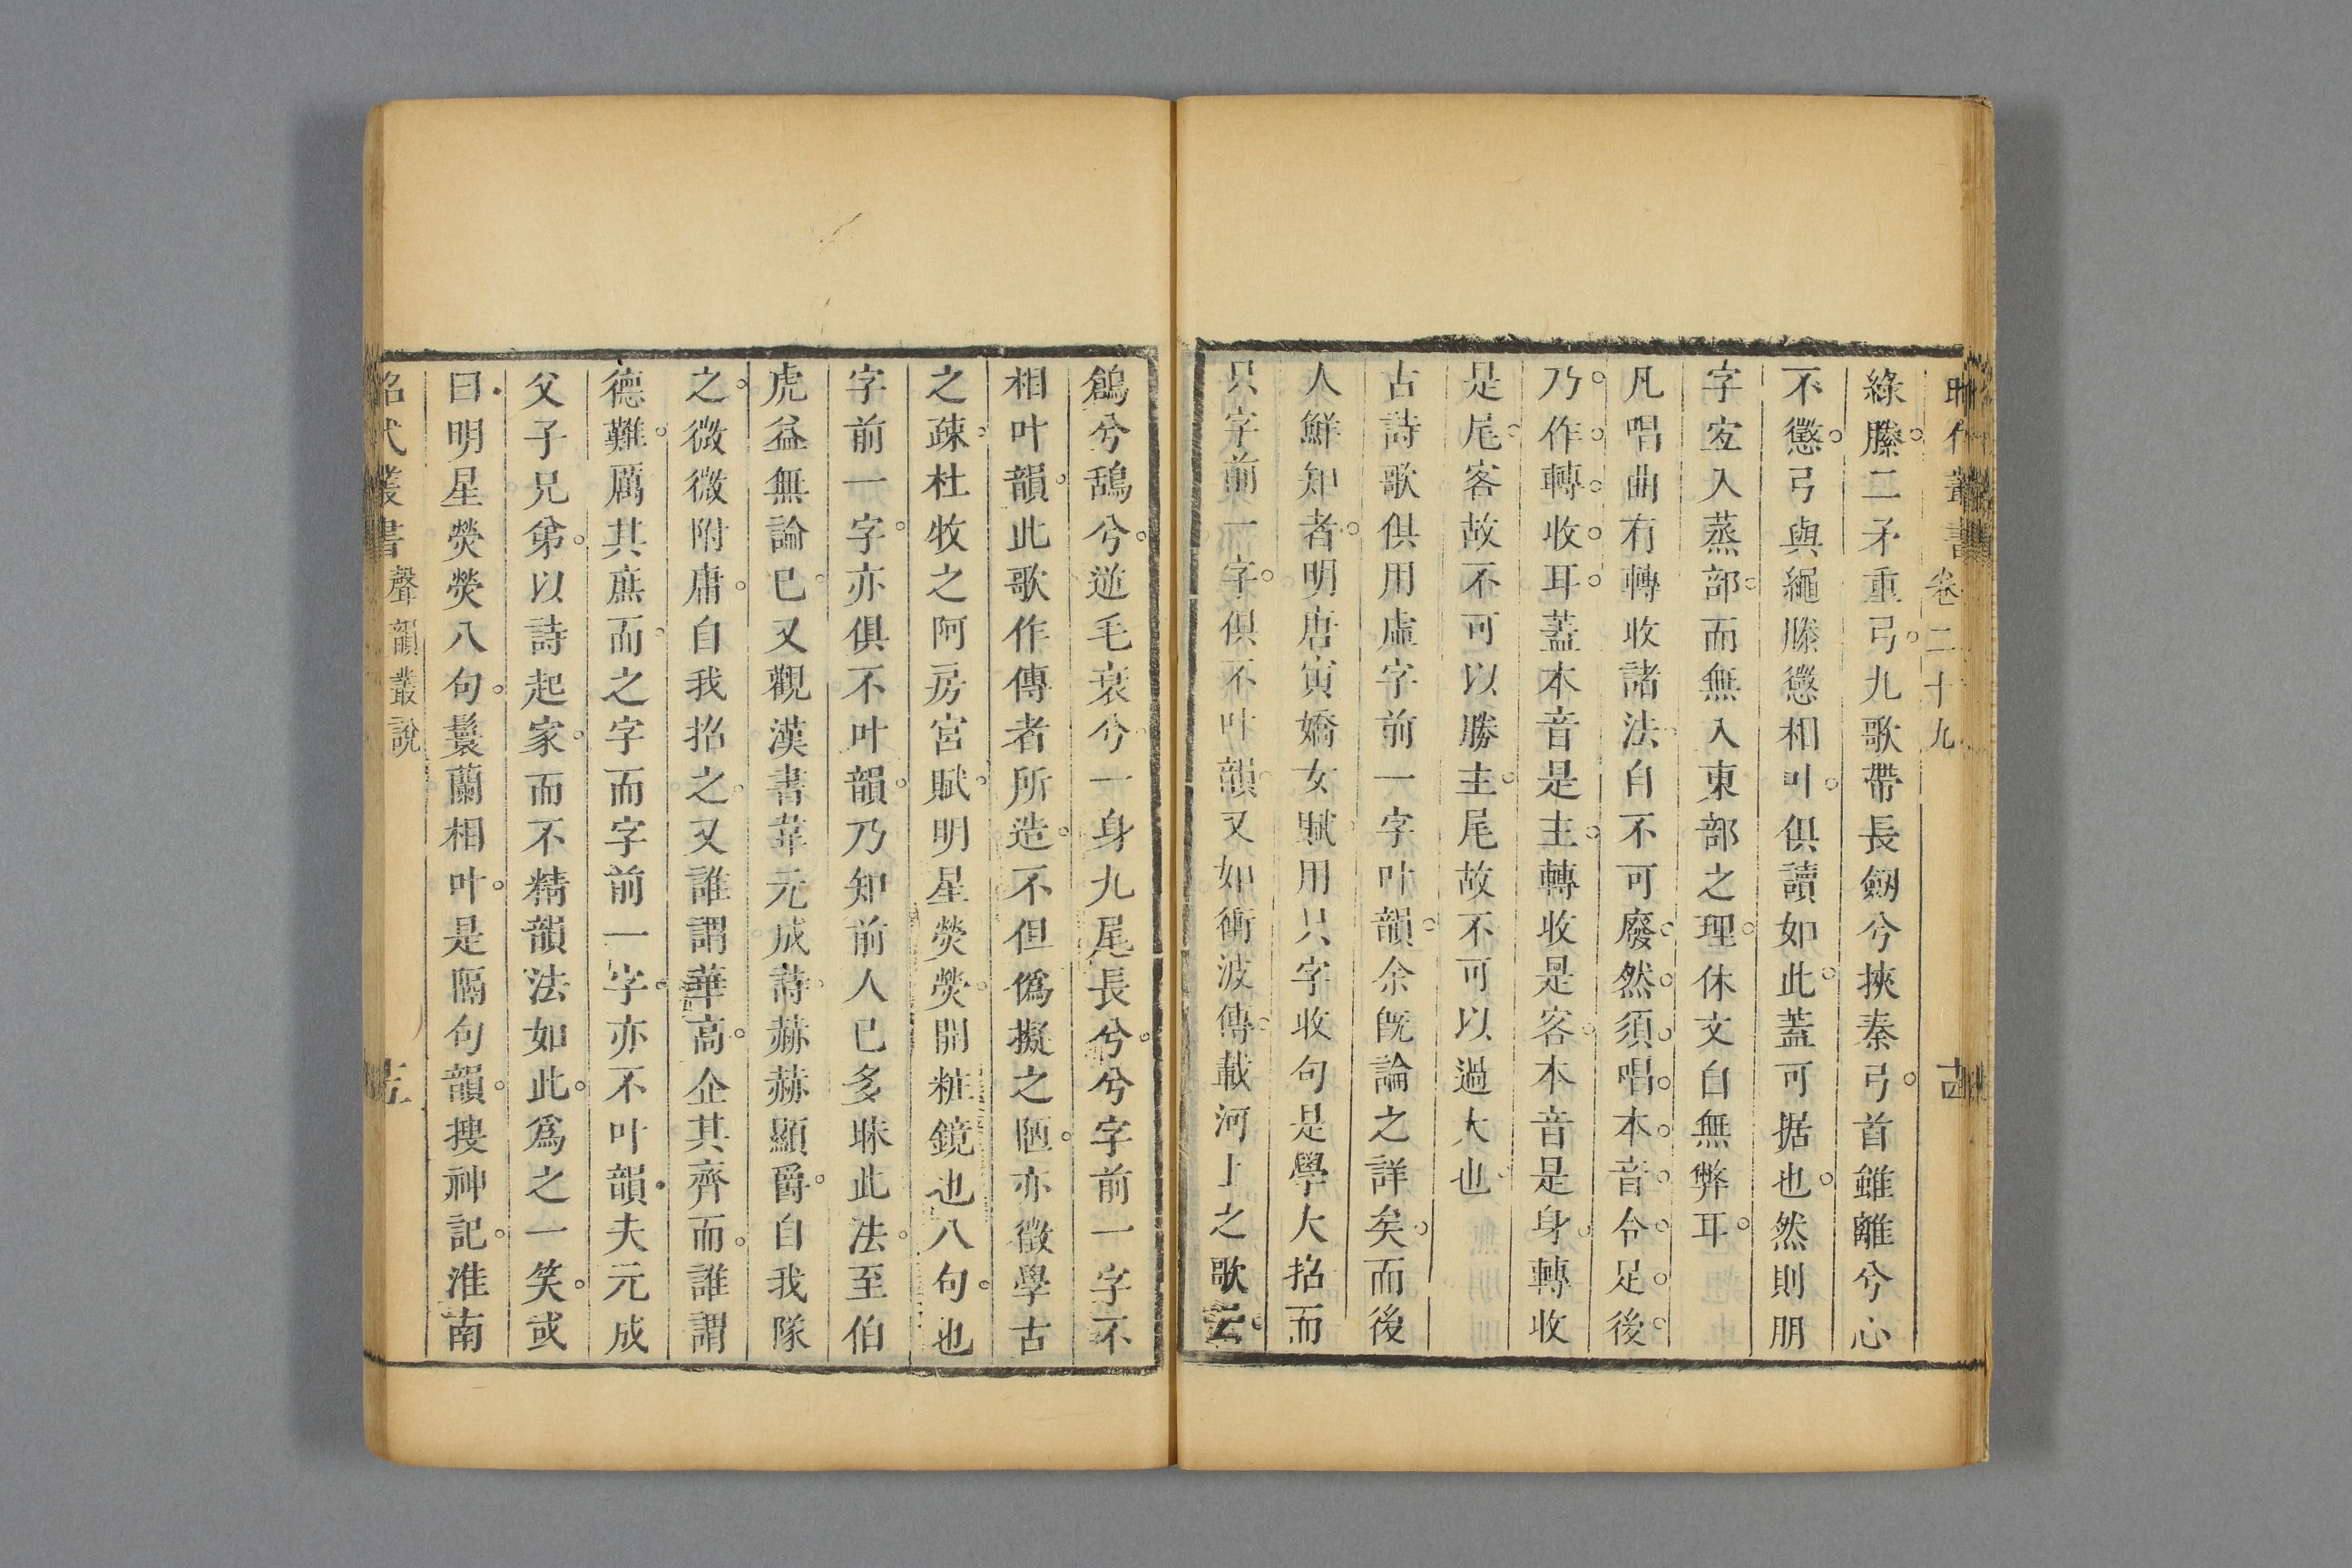 昭代叢書 卷二十九 古
綠縢二矛重弓九歌帶長劔兮挾秦弓首雖離兮心
不懲弓與繩縢懲相叶俱讀如此蓋可据也然則朋
字宐入蒸部而無入東部之理休文自無弊耳
凡唱曲有轉收諸法自不可廢然須唱本音令足後
乃作轉收耳蓋本音是主轉收是客本音是身轉收
是尾客故不可以勝主尾故不可以過大也
古詩歌俱用虛字前一字叶韻余旣論之詳矣而後
人鮮知者明唐寅嬌女賦用只字收句是學大招而
只字前一字俱不叶韻又如衝波傳載河上之歌云
鶬兮鴰兮逆毛衰兮一身九尾長兮兮字前一字不
相叶韻此歌作傳者所造不但僞擬之陋亦徵學古
之疎杜牧之阿房宮賦明星熒熒開粧鏡也八句也
字前一字亦俱不叶韻乃知前人已多昧此法至伯
虎益無論已又觀漢書韋元成詩赫赫顯爵自我隊
之微微附庸自我招之又誰謂華高企其齊而誰謂
德難厲其庶而之字而字前一字亦不叶韻夫元成
父子兄弟以詩起家而不精韻法如此爲之一笑或
曰明星熒熒八句鬟蘭相叶是隔句韻搜神記淮南
昭代叢書 聲韻叢說